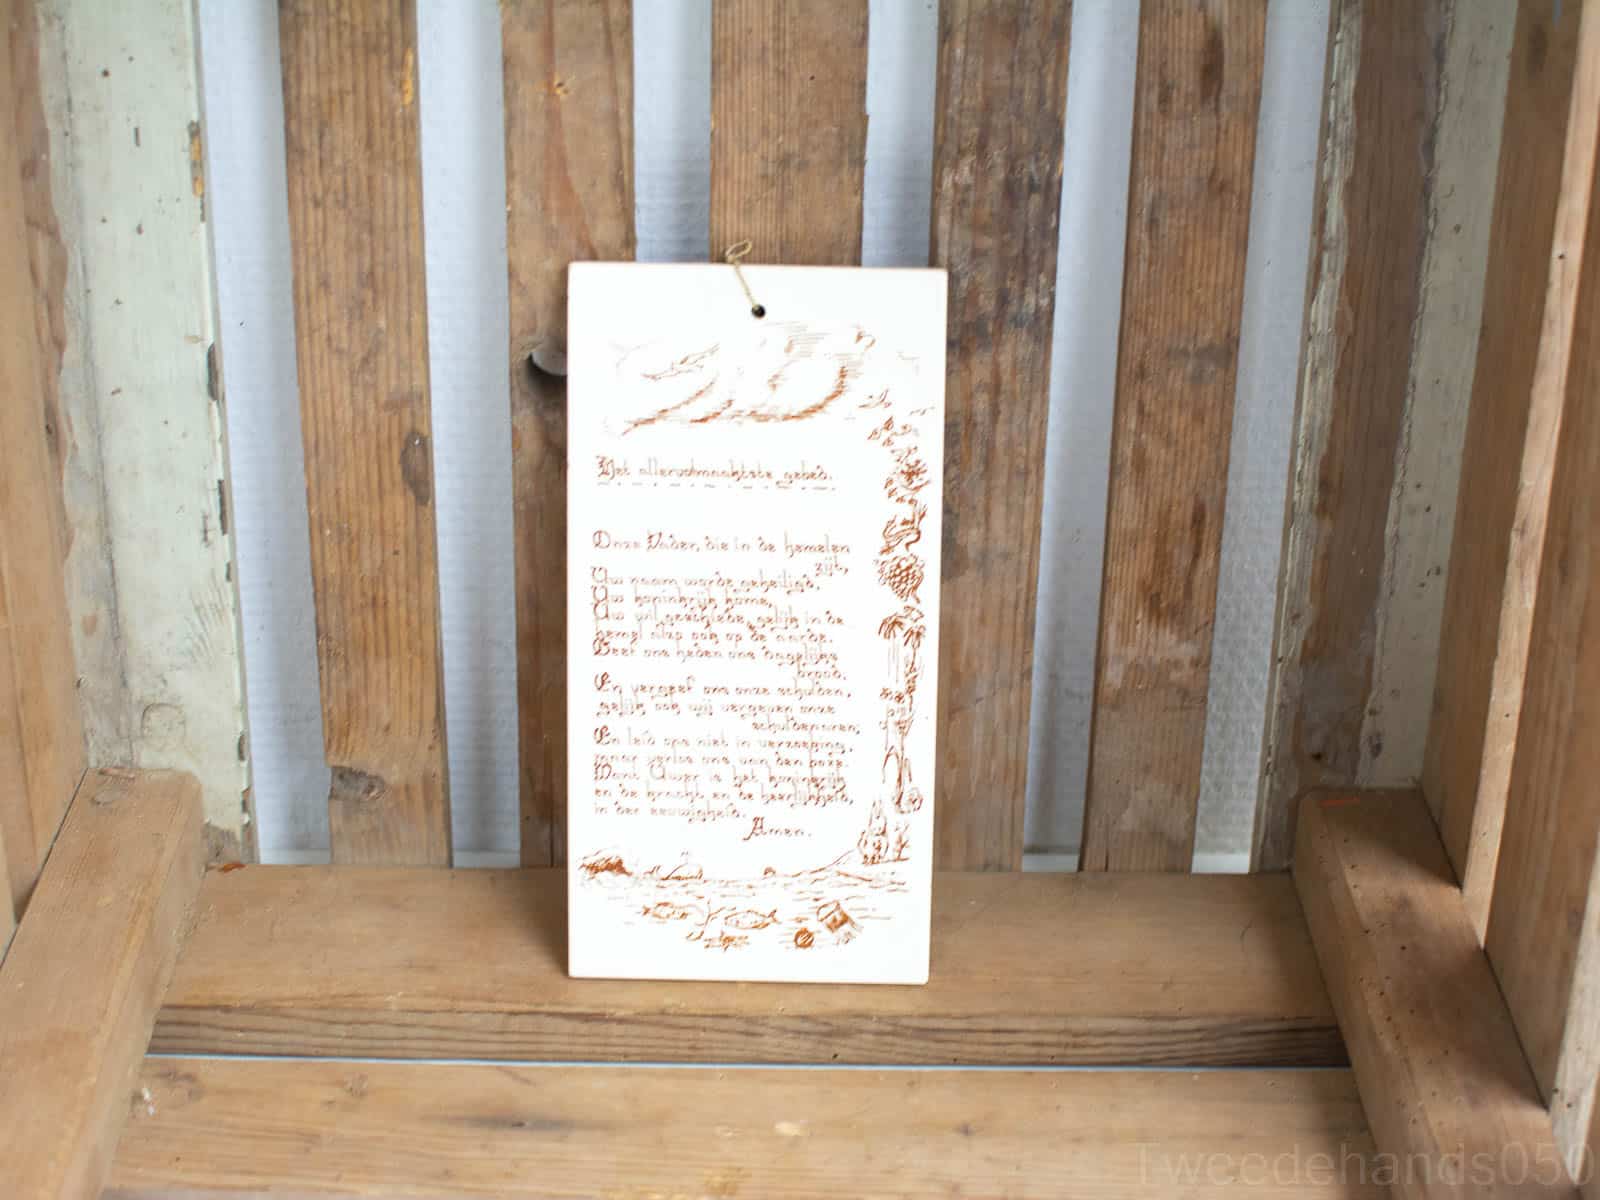 Het allervolmaakste gebed.
Onze Vader, die in de hemelen
zijt,
Uw naam worde geheiligd,
Uw koninkrijk kome,
Uw wil geschiede, gelijk in de
hemel alzo ook op de aarde.
Geef ons heden ons dagelijks
brood.
En vergeef ons onze schulden,
gelijk ook wij vergeven onze
schuldenaren;
En leid ons niet in verzoeking,
maar verlos ons van den boze.
Want Uwer is het koninkrijk
en de kracht en de heerlijkheid,
in der eeuwigheid.
Amen.
Tweedehands050